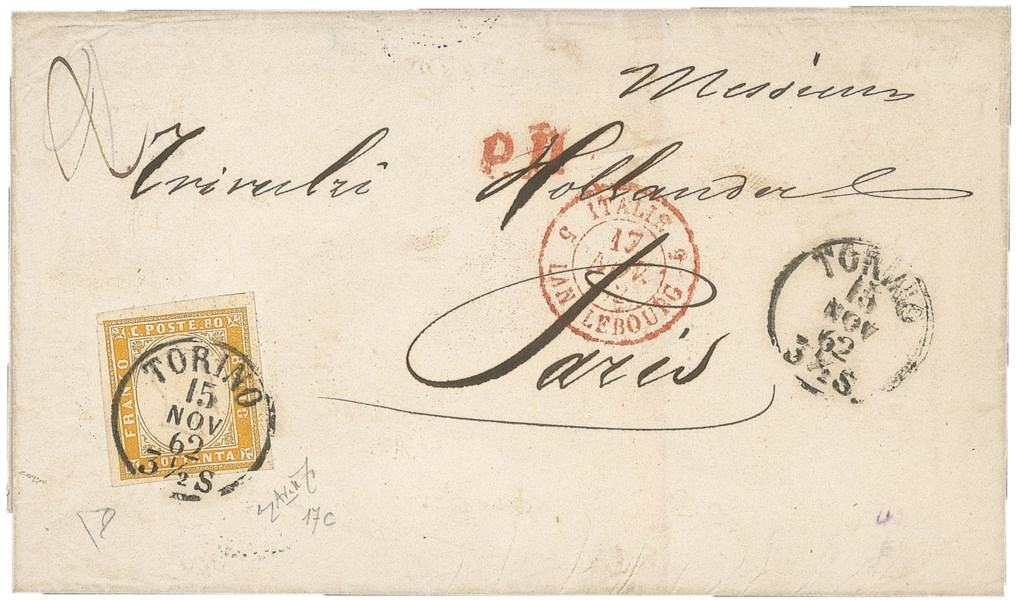 Messieurs
P.D.
Trivulzi Hollander
Paris
ITALIE
5
17
NOV.
LANSLEBOURG
TORINO
15
NOV
62
3½S.
C. POSTE. 80
FRANCO
TORINO
15
NOV
62
3½S
17c